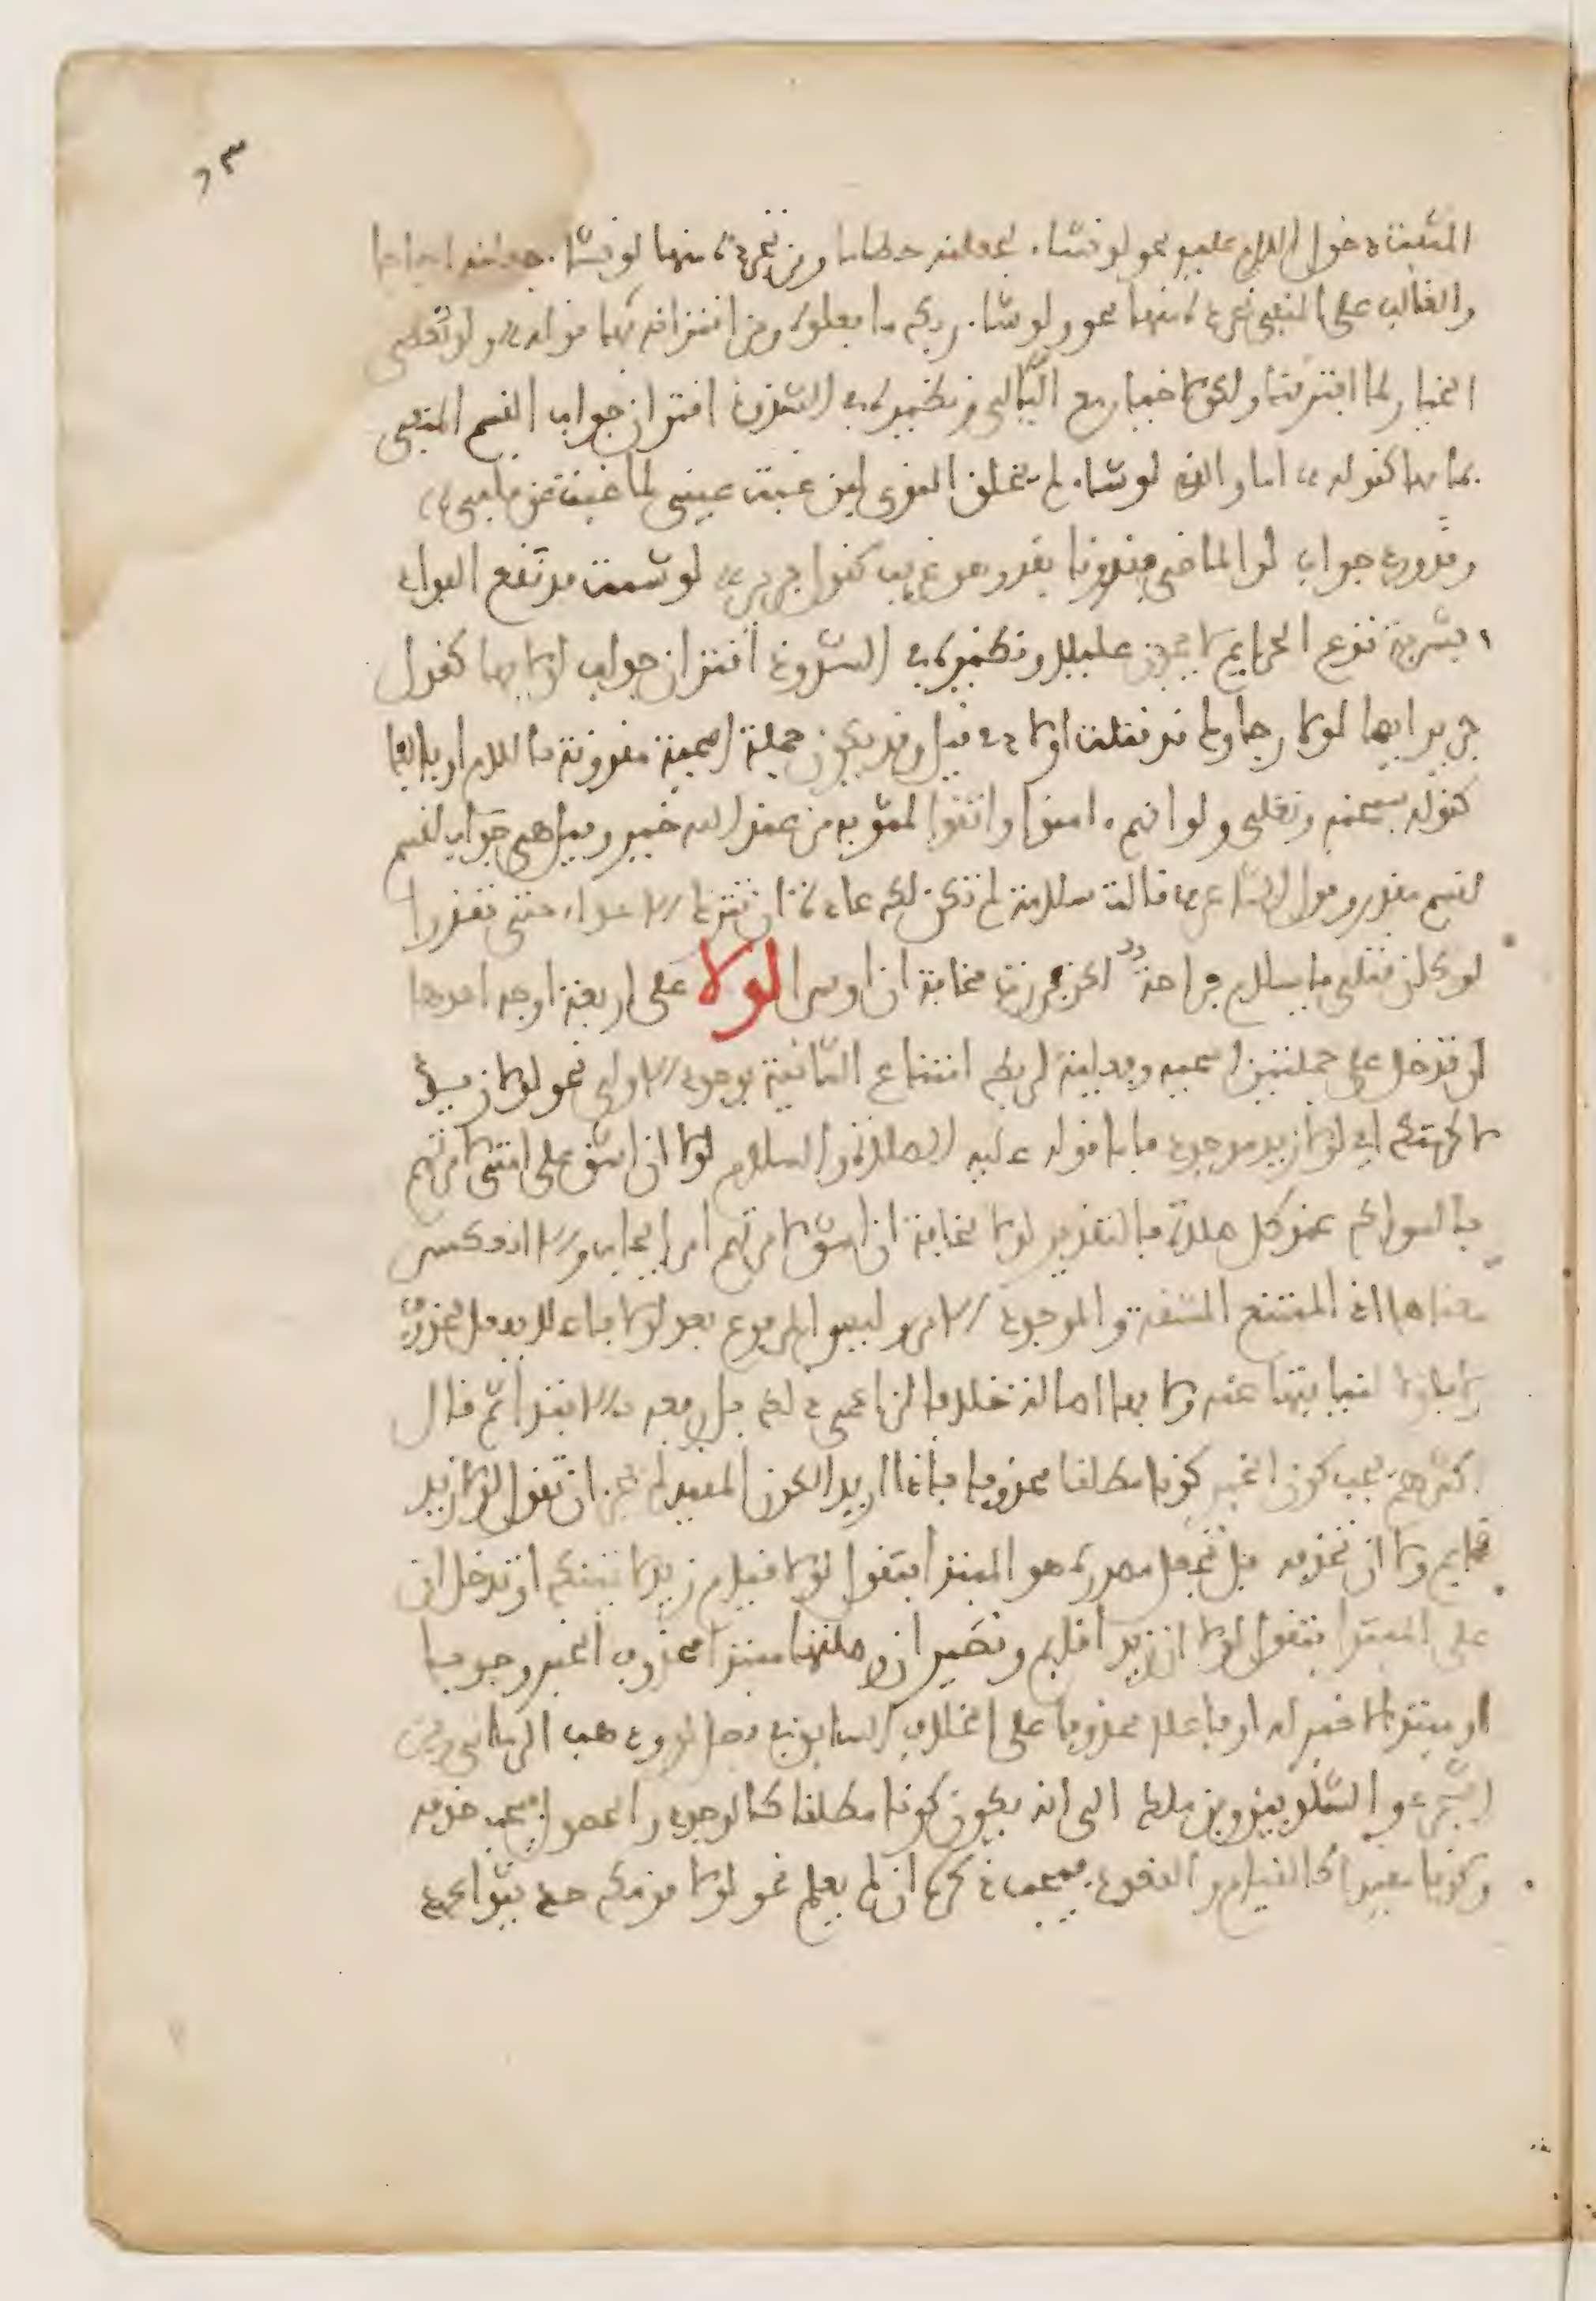 ٦٣
المثبت دخول اللام عليه نحو لو نشاء لجعلناه حطاما ومن تجرده منها لو نشاء جعلناه اجاجا
والغالب على المنفي تجرده منها نحو ولو شاء ربك ما فعلوه ومن اقترانه بها قوله ولو نعطى
الخيار لما افترقنا ولكن لا خيار مع الليالي ونظيره في الشذوذ اقتران جواب القسم المنفي
بما بها كقوله اما والذي لو شاء لم يخلق النوى لين غبت عن عيني لما غبت عن قلبي
وقد ورد جواب لو الماضي مقرونا بقد وهو غريب كقول جرير لو شئت قد نقع الفواد
بشربة تدع الحوايم لا يجدن غليلا ونظيره في الشذوذ اقتران جواب لولا بها كقول
جرير ايضا لولا رجاوك قد قتلت اولادي قيل وقد يكون جملة اسمية مقرونة باللام او بالفا
كقوله سبحنه وتعلى ولو انهم ءامنوا واتقوا لمثوبة من عند الله خير وقيل هي جواب لقسم
لقسم مقدر وقول الشاعر قالت سلامة لم تكن لك عادة ان تترك الاعداء حتى تعذرا
لو كان قتل يا سلام فراحة لكن فررت مخافة ان اوسرا لولا على اربعة اوجه احدها
ان تدخل على جملتين اسمية وفعلية لربط امتناع الثانية بوجود الاولى نحو لولا زيد
لاكرمتك اي لولا زيد موجود فاما قوله عليه الصلاة والسلام لولا ان اشق على امتي لامرتهم
بالسواك عند كل صلاة فالتقدير لولا مخافة ان اشق لامرتهم امر ايجاب والا انعكس
معناها اذ الممتنع المشقة والموجود الامر وليس المرفوع بعد لولا فاعلا بفعل محذوف
ولا بلولا لنيابتها عنه ولا بها اصالة خلافا لزاعمي ذلك بل رفعه بالابتداء ثم قال
اكثرهم يجب كون الخبر كونا مطلقا محذوفا فاذا اريد الكون المقيد لم يجز ان تقول لولا زيد
قايم ولا ان تحذفه بل تجعل مصدره هو المبتدا فتقول لولا قيام زيد لاتيتك او تدخل ان
على المبتدا فتقول لولا ان زيدا قايم وتصير ان وصلتها مبتدا محذوف الخبر وجوبا
او مبتدا لا خبر له او فاعلا محذوفا على الخلاف السابق في فصل لو وذهب الرماني وابن
الشجري والشلوبين وابن ملك الى انه يكون كونا مطلقا كالوجود والحصول فيجب حذفه
وكونا مقيدا كالقيام والقعود فيجب ذكره ان لم يعلم نحو لولا قومك حديثوا عهد